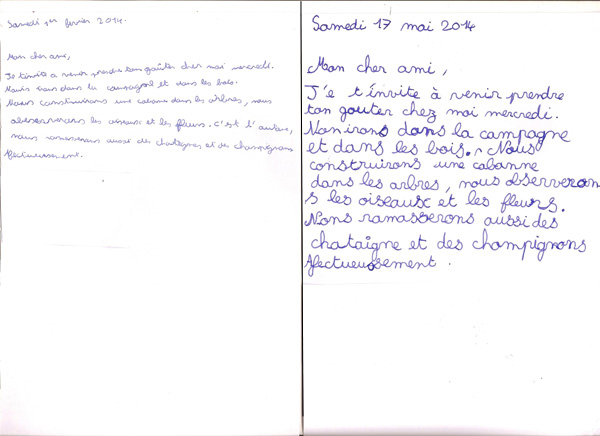 Samedi 1er fevrier 2014.
Mon cher ami,
Je t'invite a venir prendre ton goûter cher moi mercredi.
dans la campagnol et dans les bois.
Nous construirons une cabane dans les arbres, nous
les oiseaux et les fleurs. C'est l'autone,
nous ramasserons aussi des chataigne, et des champignons
Afectueusement.
Samedi 17 mai 2014
Mon cher ami,
J'e t'invite à venir prendre
ton gouter chez moi mercredi.
Nonirons dans la campagne
et dans les bois. Nous
construirons une cabanne
dans les arbres, nous observeron
s les oiseaux et les fleurs.
Nons ramasserons aussi des
chataîgne et des champignons
Afectueussement.